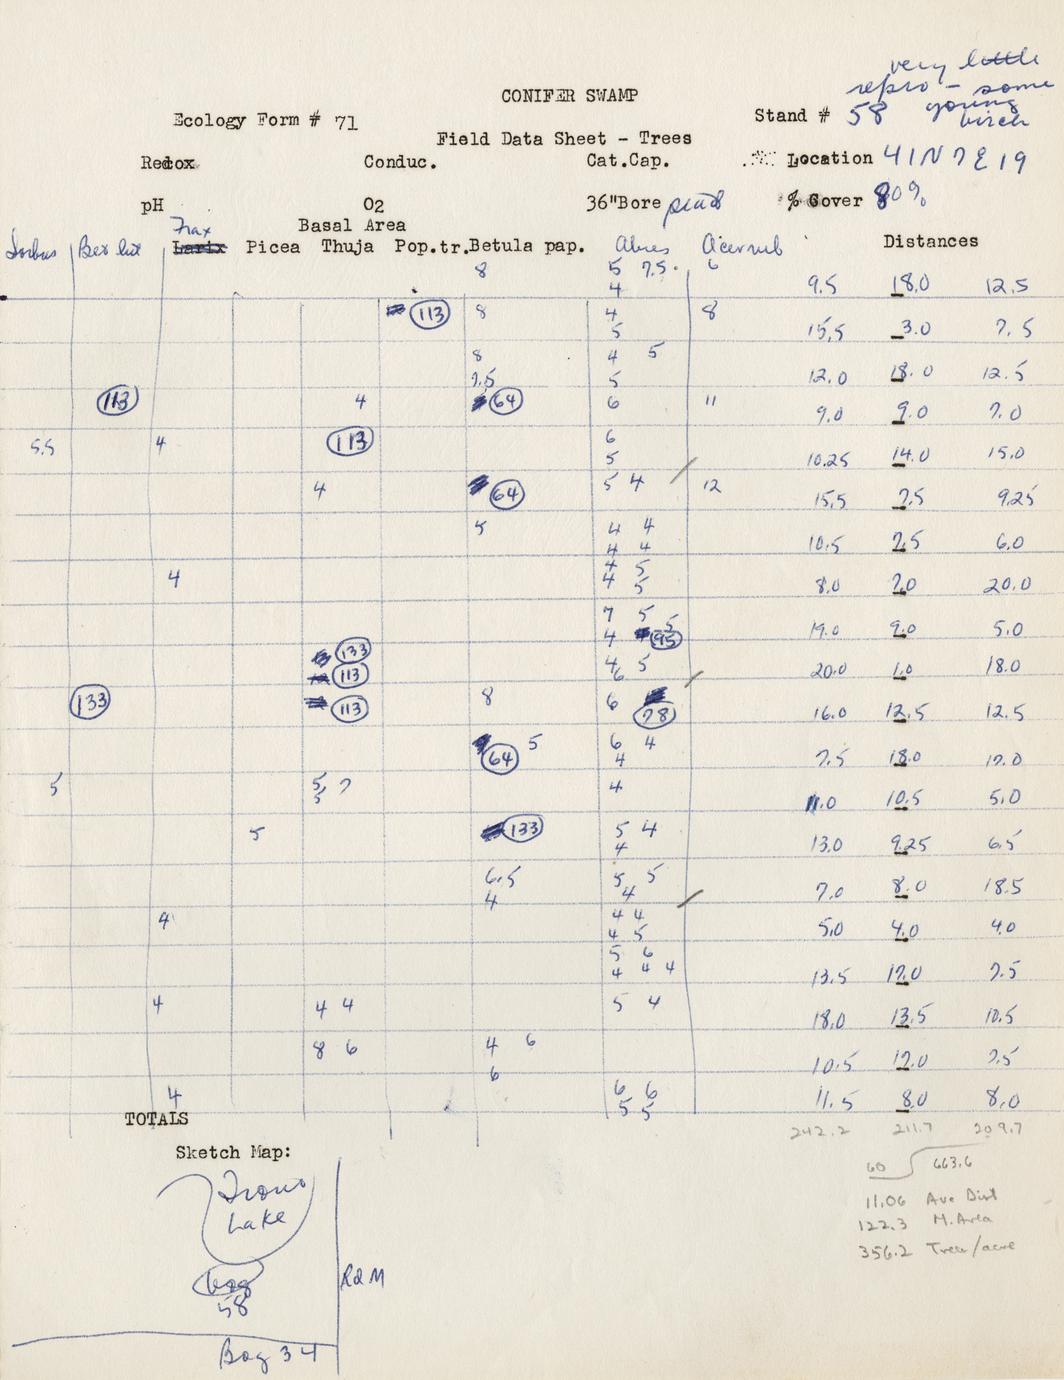 very little
repro - some
young
birch
CONIFER SWAMP
Ecology Form # 71
Stand # 58
Field Data Sheet - Trees
Redox Conduc. Cat.Cap. Location 41N 7E 19
pH O2 36"Bore peat % Cover 80%
Frax
Basal Area
Sorbus Bet lut Larix Picea Thuja Pop.tr. Betula pap. Abies Acer rub Distances
8 5 7.5 6
4 9.5 18.0 12.5
113 8 4 8
5 15.5 3.0 7.5
8 4 5
7.5 5 12.0 18.0 12.5
113 4 64 6 11 9.0 9.0 7.0
5.5 4 113 6
5 10.25 14.0 15.0
4 64 5 4 12 15.5 7.5 9.25
5 4 4
4 4 10.5 7.5 6.0
4 4 5
4 5 8.0 7.0 20.0
7 5 5
4 95 19.0 9.0 5.0
133
113 4 5
6 20.0 1.0 18.0
133 113 8 6 78 16.0 12.5 12.5
64 5 6 4
4 7.5 18.0 17.0
5 5 7 4
5 11.0 10.5 5.0
5 133 5 4
4 13.0 9.25 6.5
6.5 5 5
4 4 7.0 8.0 18.5
4 4 4
4 5 5.0 4.0 4.0
5 6
4 4 4 13.5 17.0 7.5
4 4 4 5 4 18.0 13.5 10.5
8 6 4 6 10.5 17.0 7.5
6
4 6 6
5 5 11.5 8.0 8.0
TOTALS 242.2 211.7 209.7
Sketch Map:
60 663.6
11.06 Ave Dist
122.3 M. Area
356.2 Trees/acre
Lake
bog
58
Rd M
Bog 34